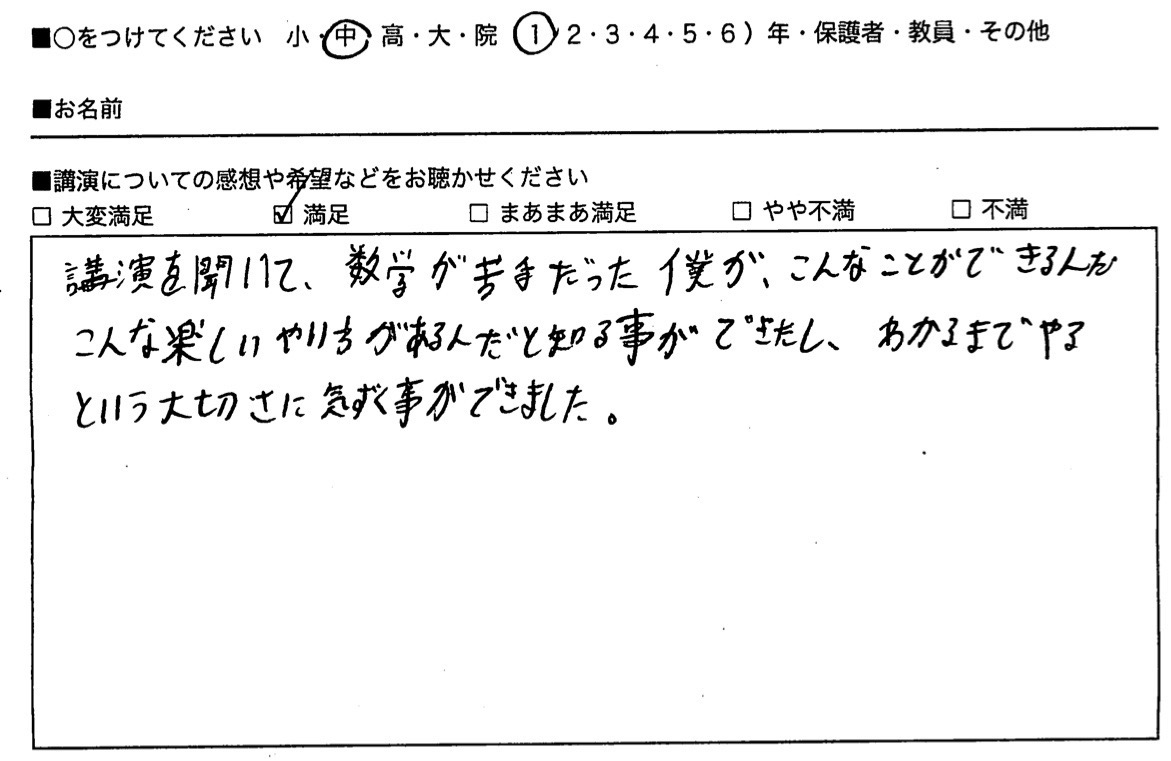 ■○をつけてください 小・中・高・大・院 (1・2・3・4・5・6) 年・保護者・教員・その他
■お名前
■講演についての感想や希望などをお聴かせください
□ 大変満足 ☑ 満足 □ まあまあ満足 □ やや不満 □不満
講演を聞いて、数学が苦手だった僕が、こんなことができるんだ
こんな楽しいやり方があるんだと知る事ができたし、わかるまでやる
という大切さに気ずく事ができました。